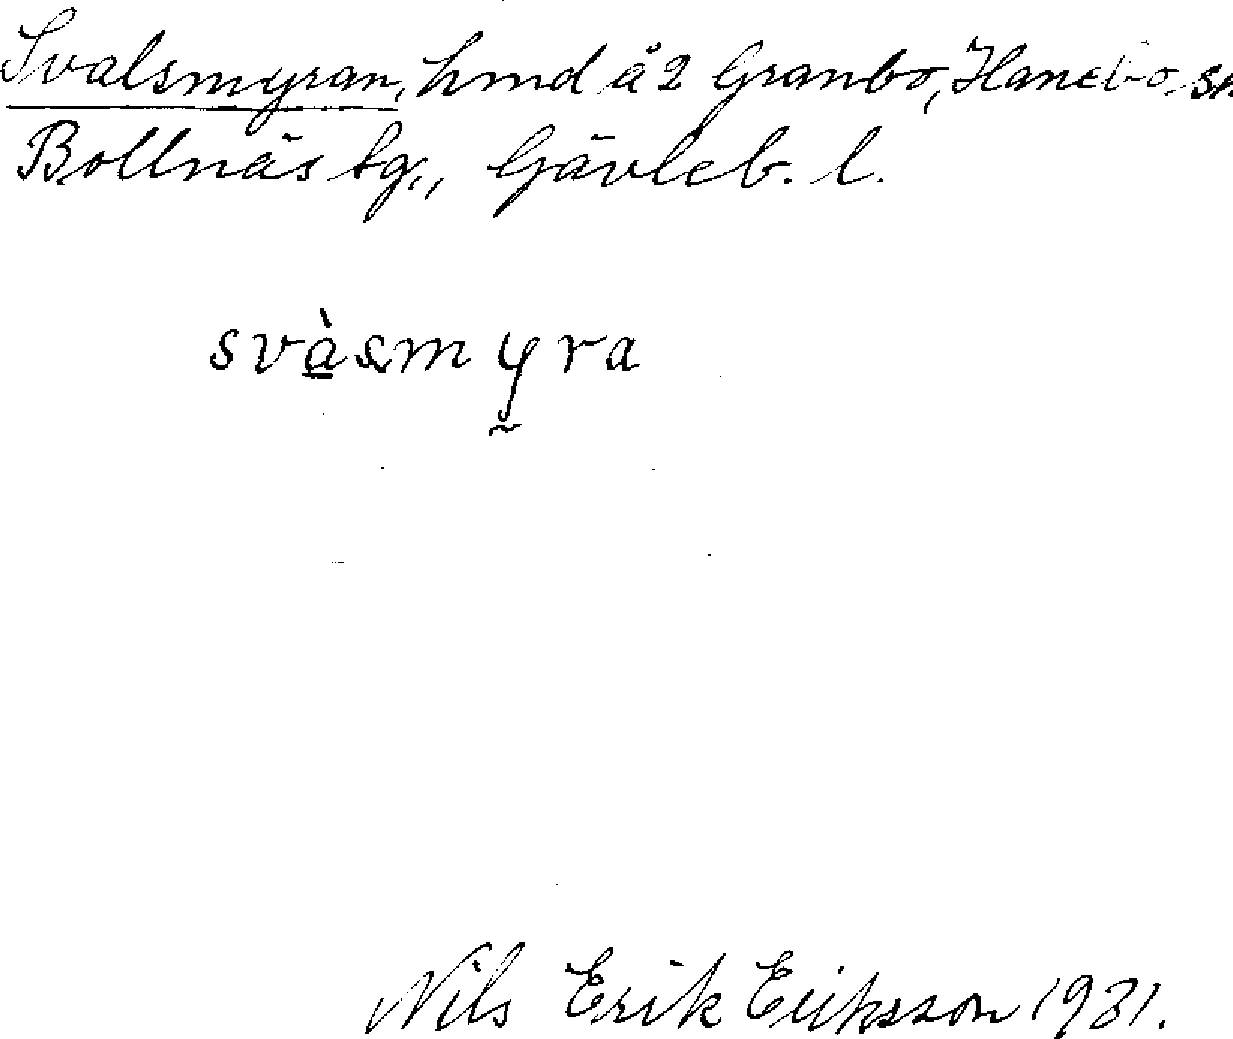 Svalsmyran, hmd å 2 Granbo, Hanebo sn
Bollnäs tg., Gävleb. l.
svàsmyra
Nils Erik Eriksson 1931.